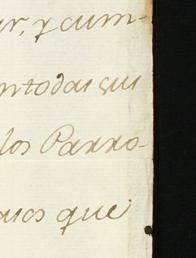 ar, y cum-
ntodas sus
los Parro-
asos que